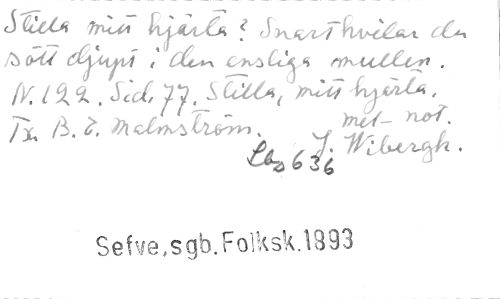 Stilla mitt hjärta? Snart hvilar du
sött djupt i den ensliga mullen.
N. 122. Sid. 77. Stilla, mitt hjärta.
Tx. B. E. Malmström. met- not.
J. Wibergh.
636
Sefve,sgb.Folksk.1893